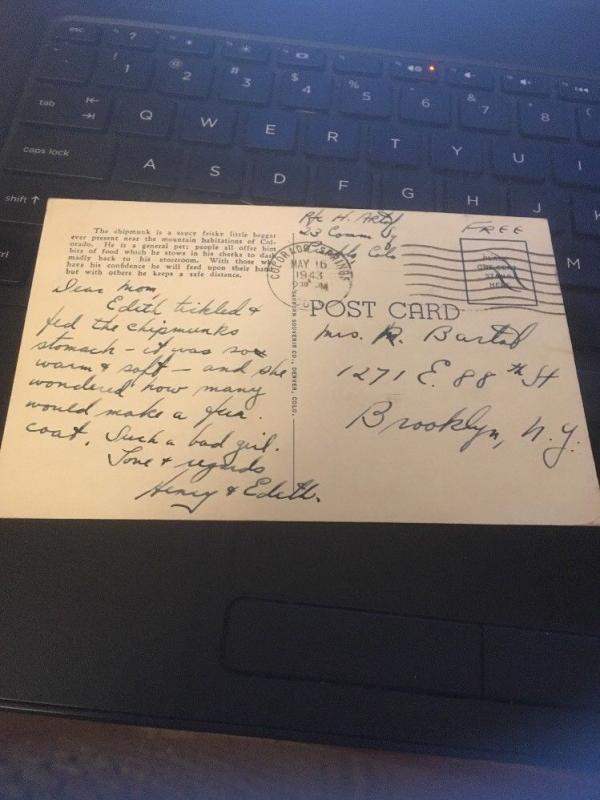 esc ?
! 1 @ 2 # 3 $ 4 % 5 6 & 7 8
tab Q W E R T Y U I
caps lock A S D F G H J K
shift M
The chipmunk is a saucy frisky little beggar
ever present near the mountain habitations of Col-
orado. He is a general pet; people all offer him
bits of food which he stows in his cheeks to dash
madly back to his storeroom. With those who
have his confidence he will feed upon their hand
but with others he keeps a safe distance.
Dear Mom,
Edith tickled &
fed the chipmunks
stomach - it was so
warm & soft - and she
wondered how many
would make a fur
coat. Such a bad girl.
Love & regards
Henry & Edith.
Pfc H.
23 Comm
Colo
FREE
COLORADO SPRINGS
MAY 16
1943
PM
PLACE
STAMP
HERE
SOUVENIR CO., DENVER, COLO.
POST CARD
Mrs. R. Bartal
1271 E. 88th St
Brooklyn, N.Y.